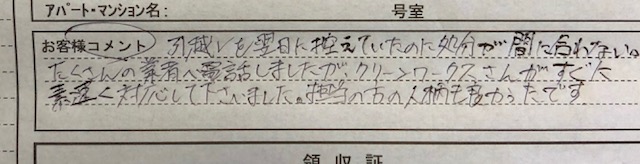 アパート・マンション名： 号室
お客様コメント 引越しを翌日に控えていたのに処分が間に合わない。
たくさんの業者へ電話しましたがクリーンワークスさんがすぐに
素早く対応して下さいました。担当の方の人柄も良かったです
領収証